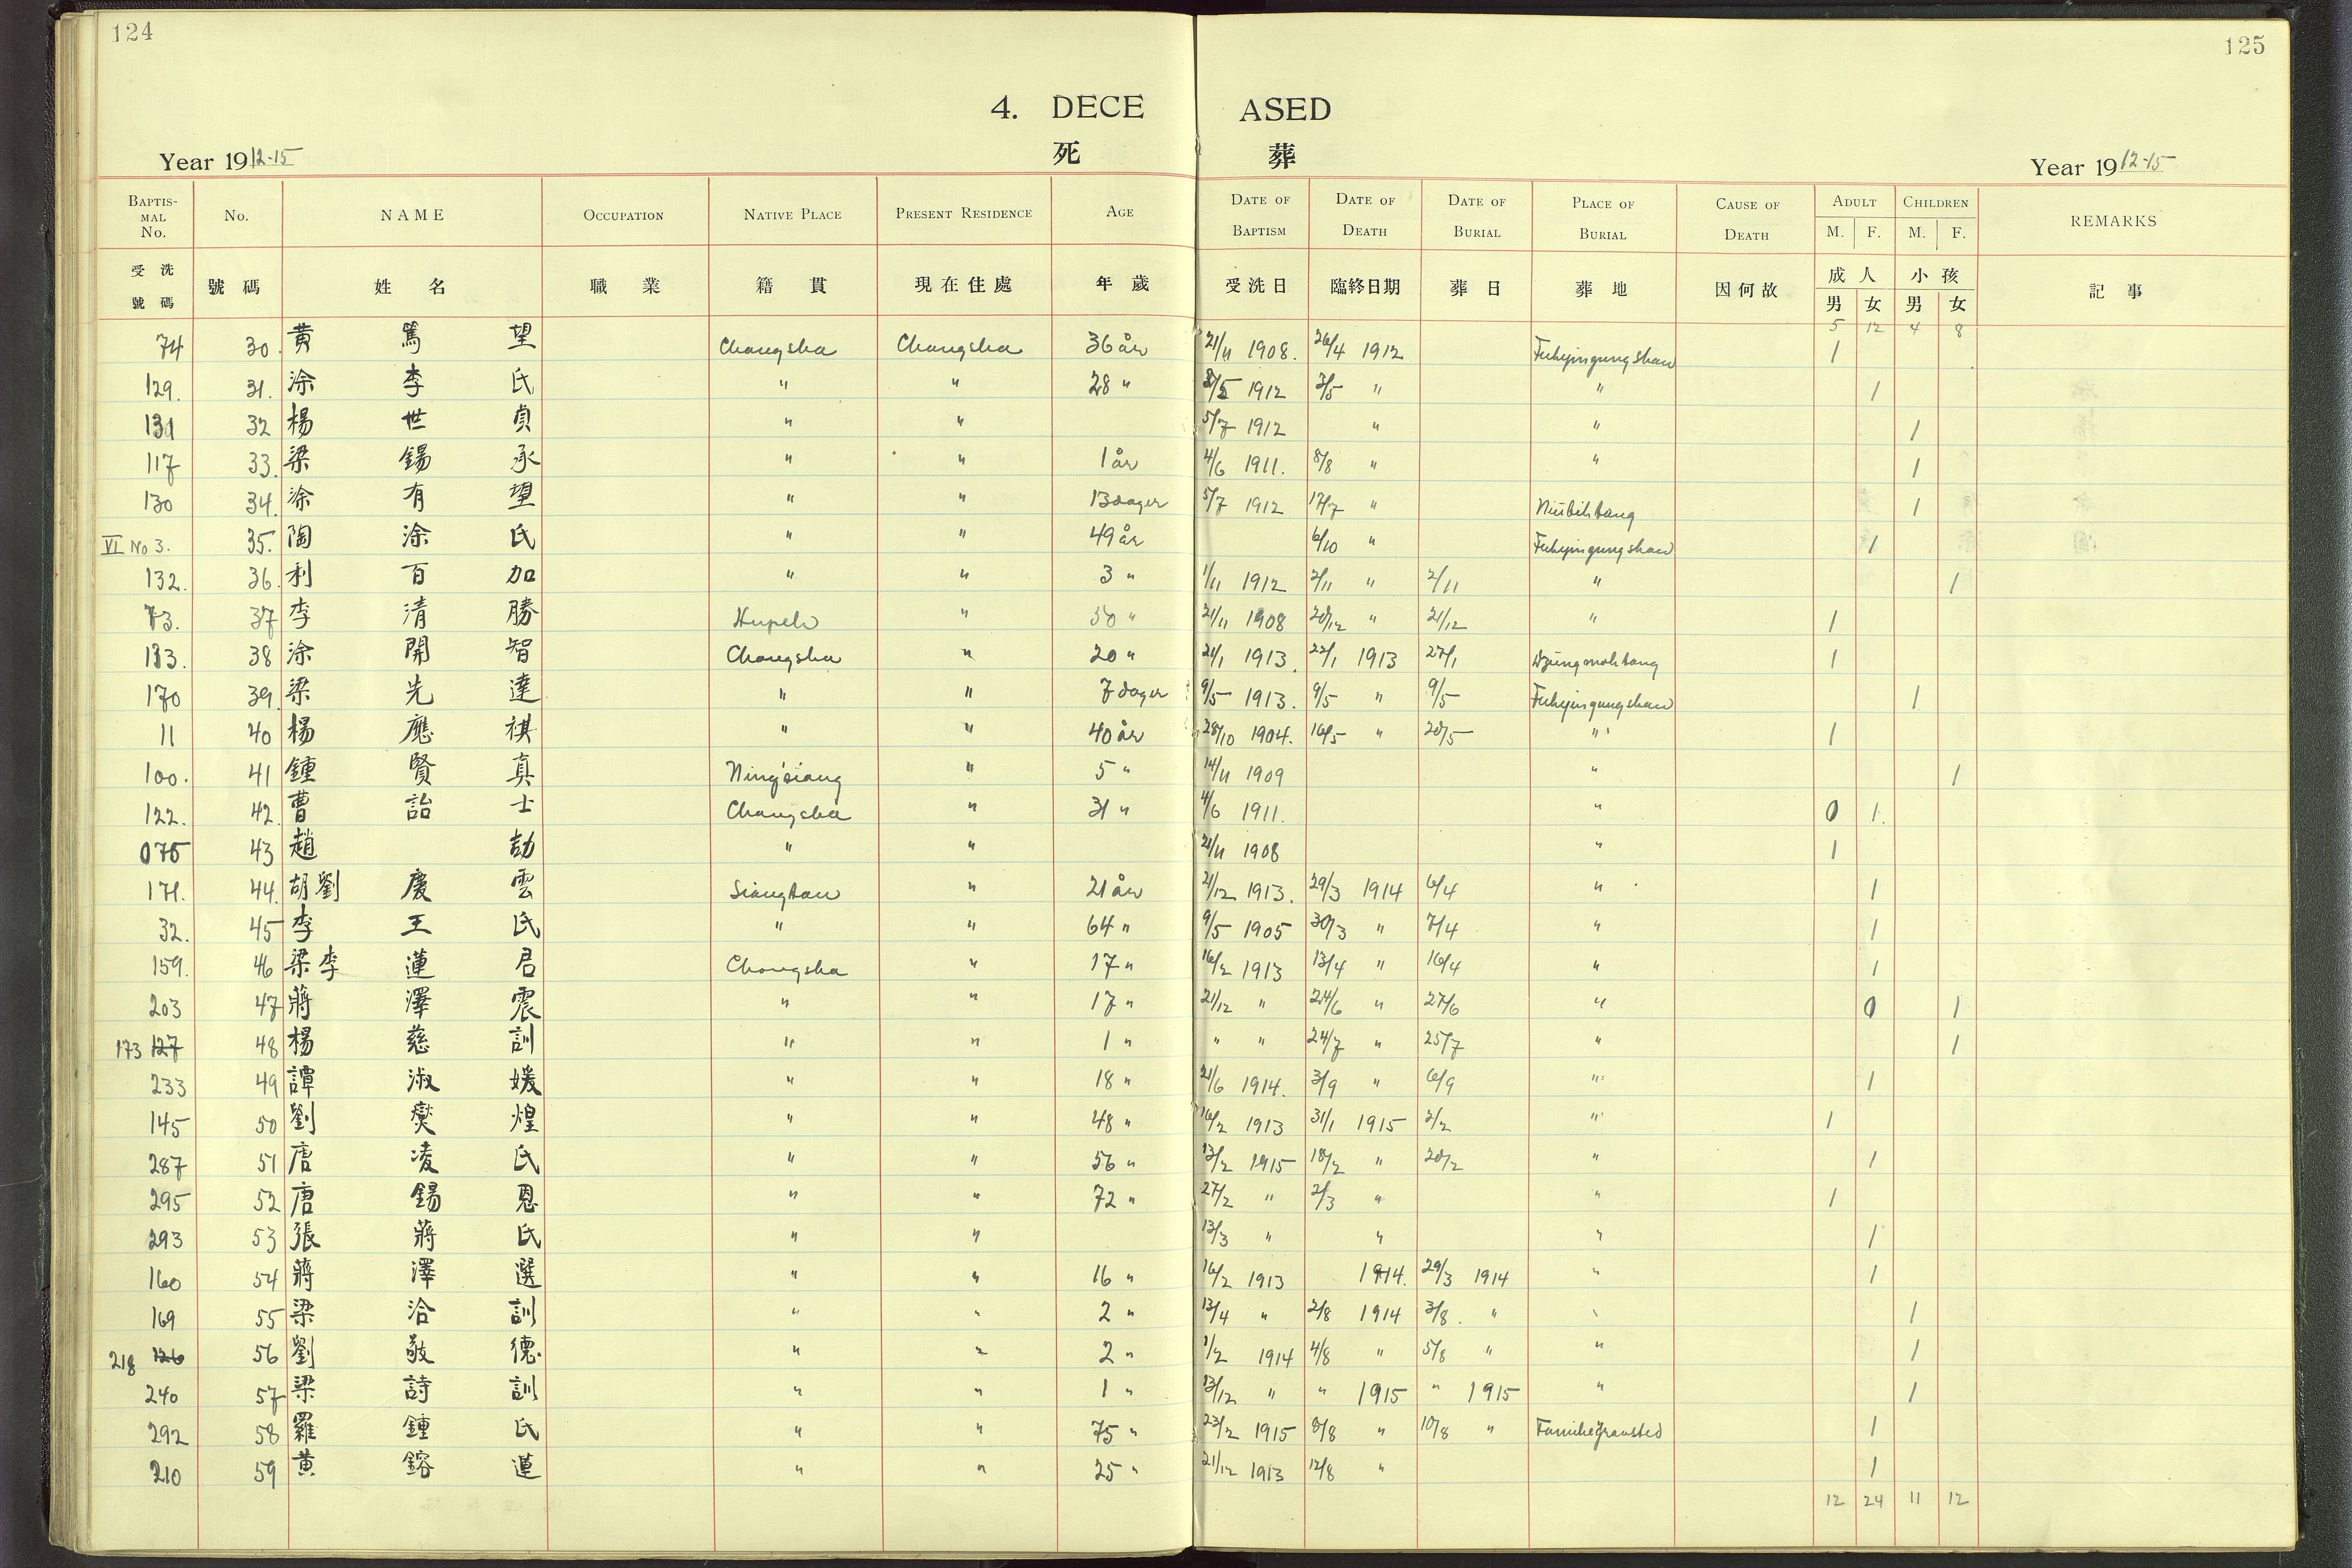 124
125
4. DECEASED
死 葬
Year 1912-15
Year 1912-15
BAPTISMAL No. No. NAME OCCUPATION NATIVE PLACE PRESENT RESIDENCE AGE DATE OF BAPTISM DATE OF DEATH DATE OF BURIAL PLACE OF BURIAL CAUSE OF DEATH ADULT M. F. CHILDREN M. F. REMARKS
受洗號碼 號碼 姓名 職業 籍貫 現在住處 年歲 受洗日 臨終日期 葬日 葬地 因何故 成人 男 女 小孩 男 女 記事
5 12 4 8
74 30. 黄篤望 Changsha Changsha 36 år 21/11 1908. 26/4 1912 Fuhyingungshan 1
129. 31. 涂李氏 " " 28 " 1912 3/5 " " 1
131 32 楊世貞 " " 5/7 1912 " " 1
117 33. 梁錫承 " " 1 år 4/6 1911. 8/8 " " 1
130 34. 涂有望 " " 13 dager 5/7 1912 17/7 " 1
VI No 3. 35. 陶涂氏 " " 49 år 6/10 " Fuhyingungshan 1
132. 36. 利百加 " " 3 " 1/11 1912 2/11 " 2/11 " 1
73. 37 李清勝 Hupeh " 30 " 21/11 1908 20/12 " 21/12 " 1
133. 38 涂開智 Changsha " 20 " 21/1 1913. 22/1 1913 27/1 1
170 39. 梁先達 " " 7 dager 9/5 1913. 9/5 " 9/5 Fuhyingungshan 1
11 40 楊應祺 " " 40 år 28/10 1904. 16/5 " 20/5 " 1
100. 41 鍾賢真 Ning'siang " 5 " 14/11 1909 " 1
122. 42. 曹詒士 Changsha " 31 " 4/6 1911. " 0 1.
075 43 趙劼 " " 21/11 1908 " 1
171. 44. 胡劉慶雲 Siangtan " 21 år 21/12 1913. 29/3 1914 6/4 " 1
32. 45 李王氏 " " 64 " 9/5 1905 30/3 " 7/4 " 1
159. 46 梁李蓮君 Changsha " 17 " 16/2 1913 13/4 " 16/4 " 1
203 47 蔣澤震 " " 17 " 21/12 " 24/6 " 27/6 " 0 1
173 127 48 楊慈訓 " " 1 " " " 24/7 " 25/7 " 1
233 49 譚淑媛 " " 18 " 21/6 1914. 3/9 " 6/9 " 1
145 50 劉奕煌 " " 48 " 16/2 1913 31/1 1915 2/2 " 1
287 51 唐凌氏 " " 56 " 13/2 1915 18/2 " 20/2 " 1
295 52 唐錫恩 " " 72 " 27/2 " 2/3 " " 1
293 53 張蔣氏 " " 13/3 " " " 1
160 54 蔣澤選 " " 16 " 16/2 1913 1914. 29/3 1914 " 1
169 55 梁洽訓 " " 2 " 13/4 " 2/8 1914 3/8. " " 1
218 126 56 劉敬德 " " 2 " 1/2 1914 4/8 " 5/8 " " 1
240 57 梁詩訓 " " 1 " 13/12 " " 1915 " 1915 " 1
292 58 羅鍾氏 " " 75 " 23/2 1915 8/8 " 10/8 " Familiegravsted 1
210 59 黄鎔蓮 " " 25 " 21/12 1913 12/8 " 1
12 24 11 12